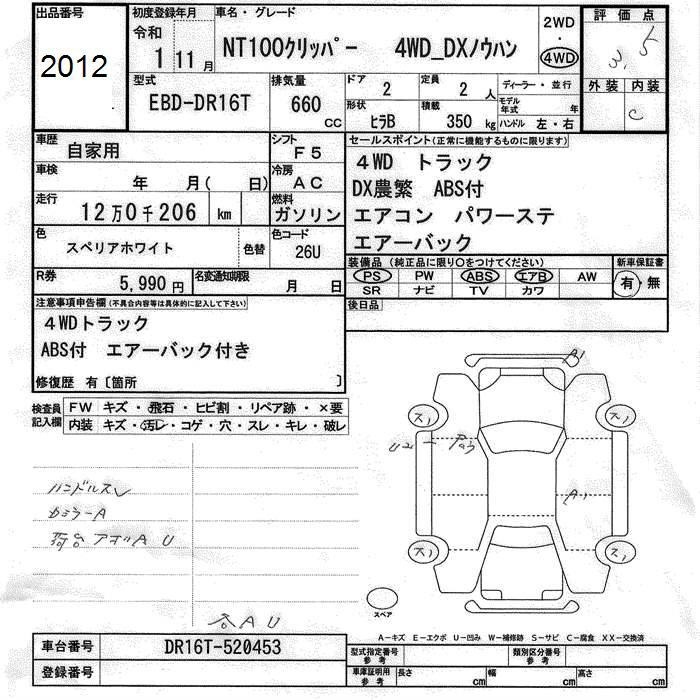 出品番号
2012
初度登録年月
令和
1 11月
車名・グレード
NT100クリッパー 4WD_DXノウハン
2WD
・
4WD
評価点
3.5
外装 内装
C
型式
EBD-DR16T
排気量
660 CC
ドア
2
定員
2 人
形状
ヒラB
積載
350 kg
ディーラー・並行
モデル年式 年
ハンドル 左・右
車歴
自家用
シフト
F5
車検
年 月( 日)
冷房
AC
走行
12万0千206 km
燃料
ガソリン
色
スペリアホワイト
色替
色コード
26U
R券
5,990円
名変通知期限
月 日
セールスポイント(正常に機能するものに限ります)
4WD トラック
DX農繁 ABS付
エアコン パワーステ
エアーバック
装備品(純正品に限り〇をつけてください)
新車保証書
PS PW ABS エアB AW
SR ナビ TV カワ
有・無
後日品
注意事項申告欄(不具合内容等は具体的に記入して下さい)
4WDトラック
ABS付 エアーバック付き
修復歴 有〔箇所 〕
検査員記入欄
FW キズ・飛石・ヒビ割・リペア跡・×要
内装 キズ・汚レ・コゲ・穴・スレ・キレ・破レ
ハンドルスレ
カミラーA
荷台アオリA U
A1
ス1
ス1
U2
A1
ス1
ス1
スペア
A U
A-キズ E-エクボ U-凹み W-補修跡 S-サビ C-腐食 XX-交換済
車台番号
DR16T-520453
登録番号
型式指定番号
参考
類別区分番号
参考
車庫証明用
参考
長さ cm
幅 cm
高さ cm